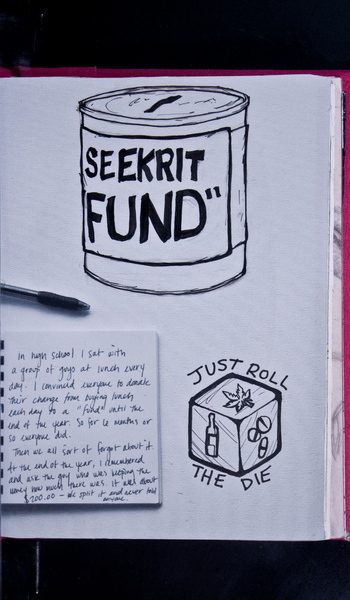 SEEKRIT
"FUND"
In high school I sat with
a group of guys at lunch every
day. I convinced everyone to donate
their change from buying lunch
each day to a "fund" until the
end of the year. So for 6 months or
so everyone did.
Then we all sort of forgot about it.
At the end of the year, I remembered
and ask the guy who was keeping the
money how much there was. It was about
$200.00 - We split it and never told
anyone.
JUST ROLL
THE DIE